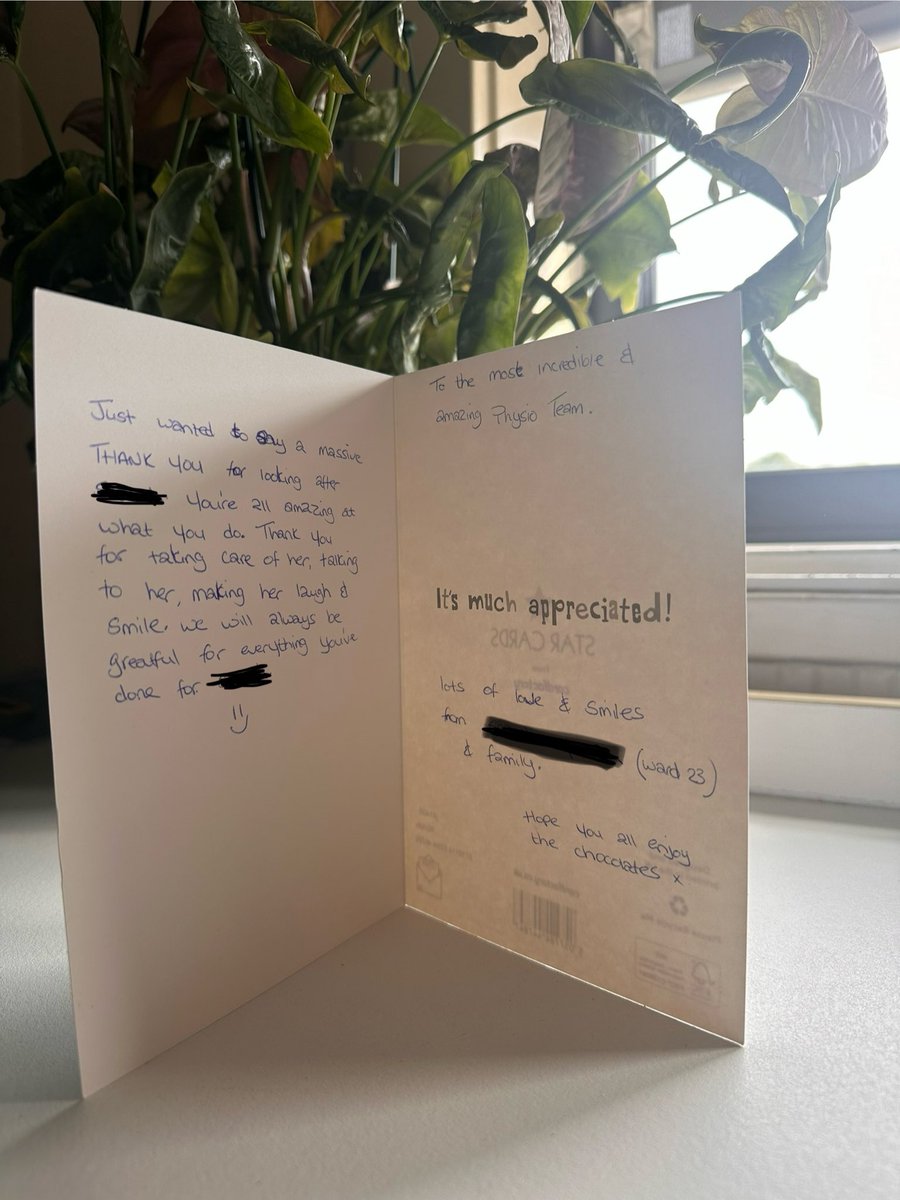 Just wanted to say a massive
THANK YOU for looking after
you're all amazing at
what you do. Thank you
for taking care of her, talking
to her, making her laugh &
smile. we will always be
greatful for everything you've
done for
To the most incredible &
amazing Physio Team.
It's much appreciated!
STAR CARDS
from
cardfactory
lots of love & smiles
from
& family. (ward 23)
Hope you all enjoy
the chocolates x
cardfactory.co.uk
Please Recycle Me